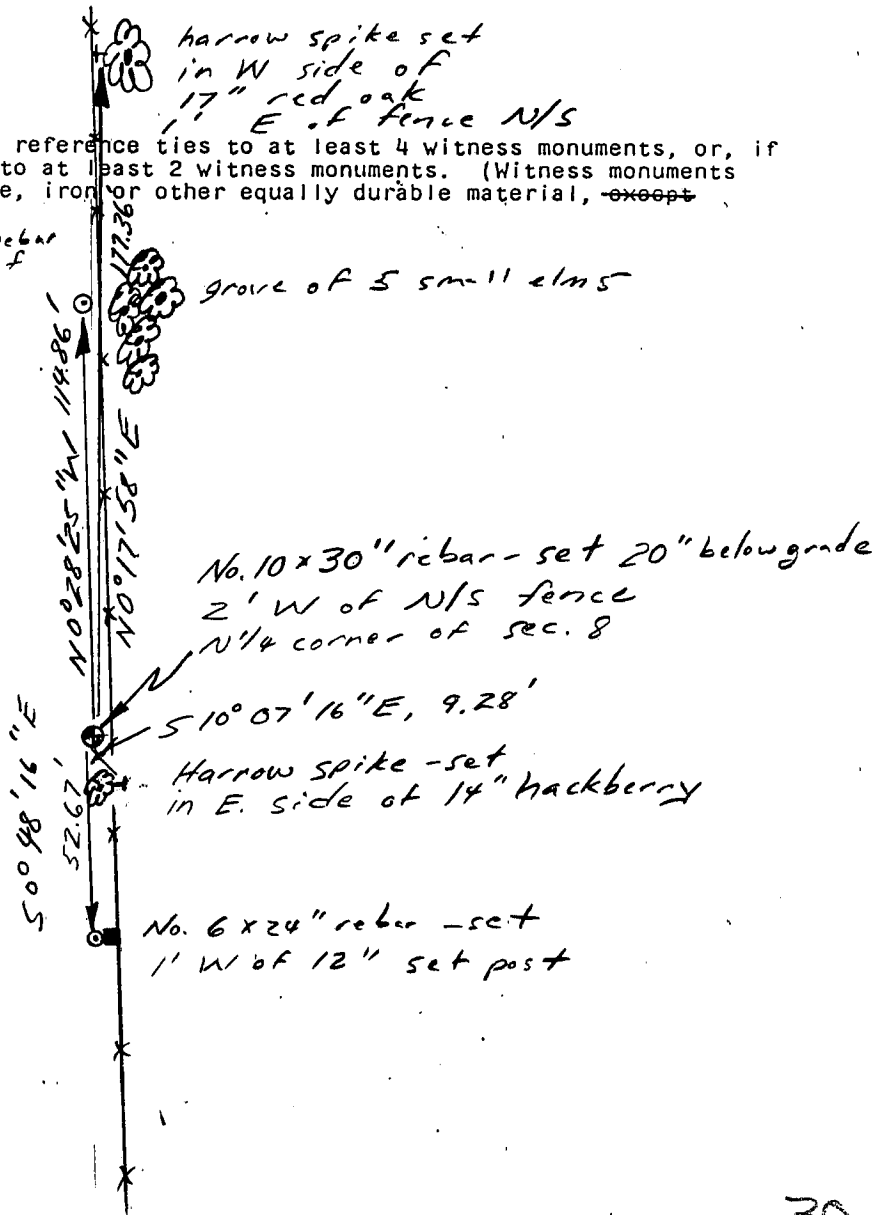 harrow spike set
in W side of
17" red oak
1' E of fence N/S
reference ties to at least 4 witness monuments, or, if
to at least 2 witness monuments. (Witness monuments
e, iron or other equally durable material, except
ebar
f
177.36
grove of 5 small elms
N0°28'25"W 114.86'
N0°17'58"E
No. 10 x 30" rebar - set 20" below grade
2' W of N/S fence
N 1/4 corner of sec. 8
S 10° 07' 16" E, 9.28'
Harrow spike - set
in E. side of 14" hackberry
S0°48'16"E
52.67'
No. 6 x 24" rebar - set
1' W of 12" set post